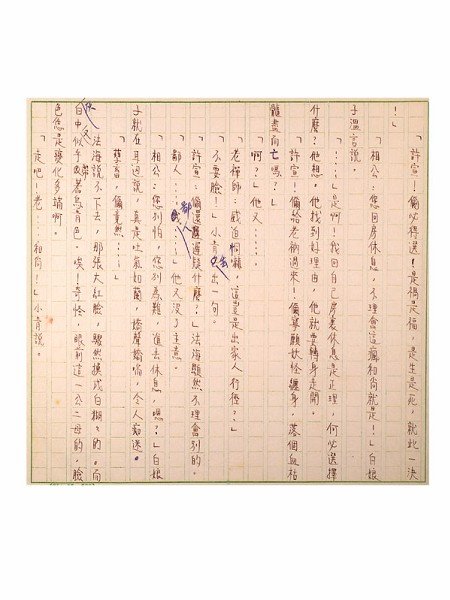 「許宣！儞必得選！是禍是福，是生是死，就此一決
！」
「相公：您回房休息，不理會這瘋和尚就是！」白娘
子溫言說。
「……」是啊！我回自己房裏休息是正理，何必選擇
什麼？他想。他找到好理由，他就要轉身走開。
「許宣！儞給老衲過來！儞寧願妖怪纏身，落個血枯
髓盡而亡嗎？」
「啊？」他又……
「老禪師：威迫恫嚇，這豈是出家人行徑？」
「不要臉！」小青出一句。
「許宣：儞還遲疑什麼？」法海顯然不理會別的。
「鄙人……」他又沒了主意。
「相公：您別怕，您別為難，進去休息，嗯？」白娘
子就在耳邊說，真是吐氣如蘭，嬌聲嬌喘，令人痴迷。
「孽畜，儞竟然……」
法海說不下去，那張大紅臉，驟然換成白糊々的。而
白中似乎又帶著烏青色，唉！奇怪，眼前這一公二母的，臉
色怎是變化多端啊。
「走吧！老——和尚！」小青說。